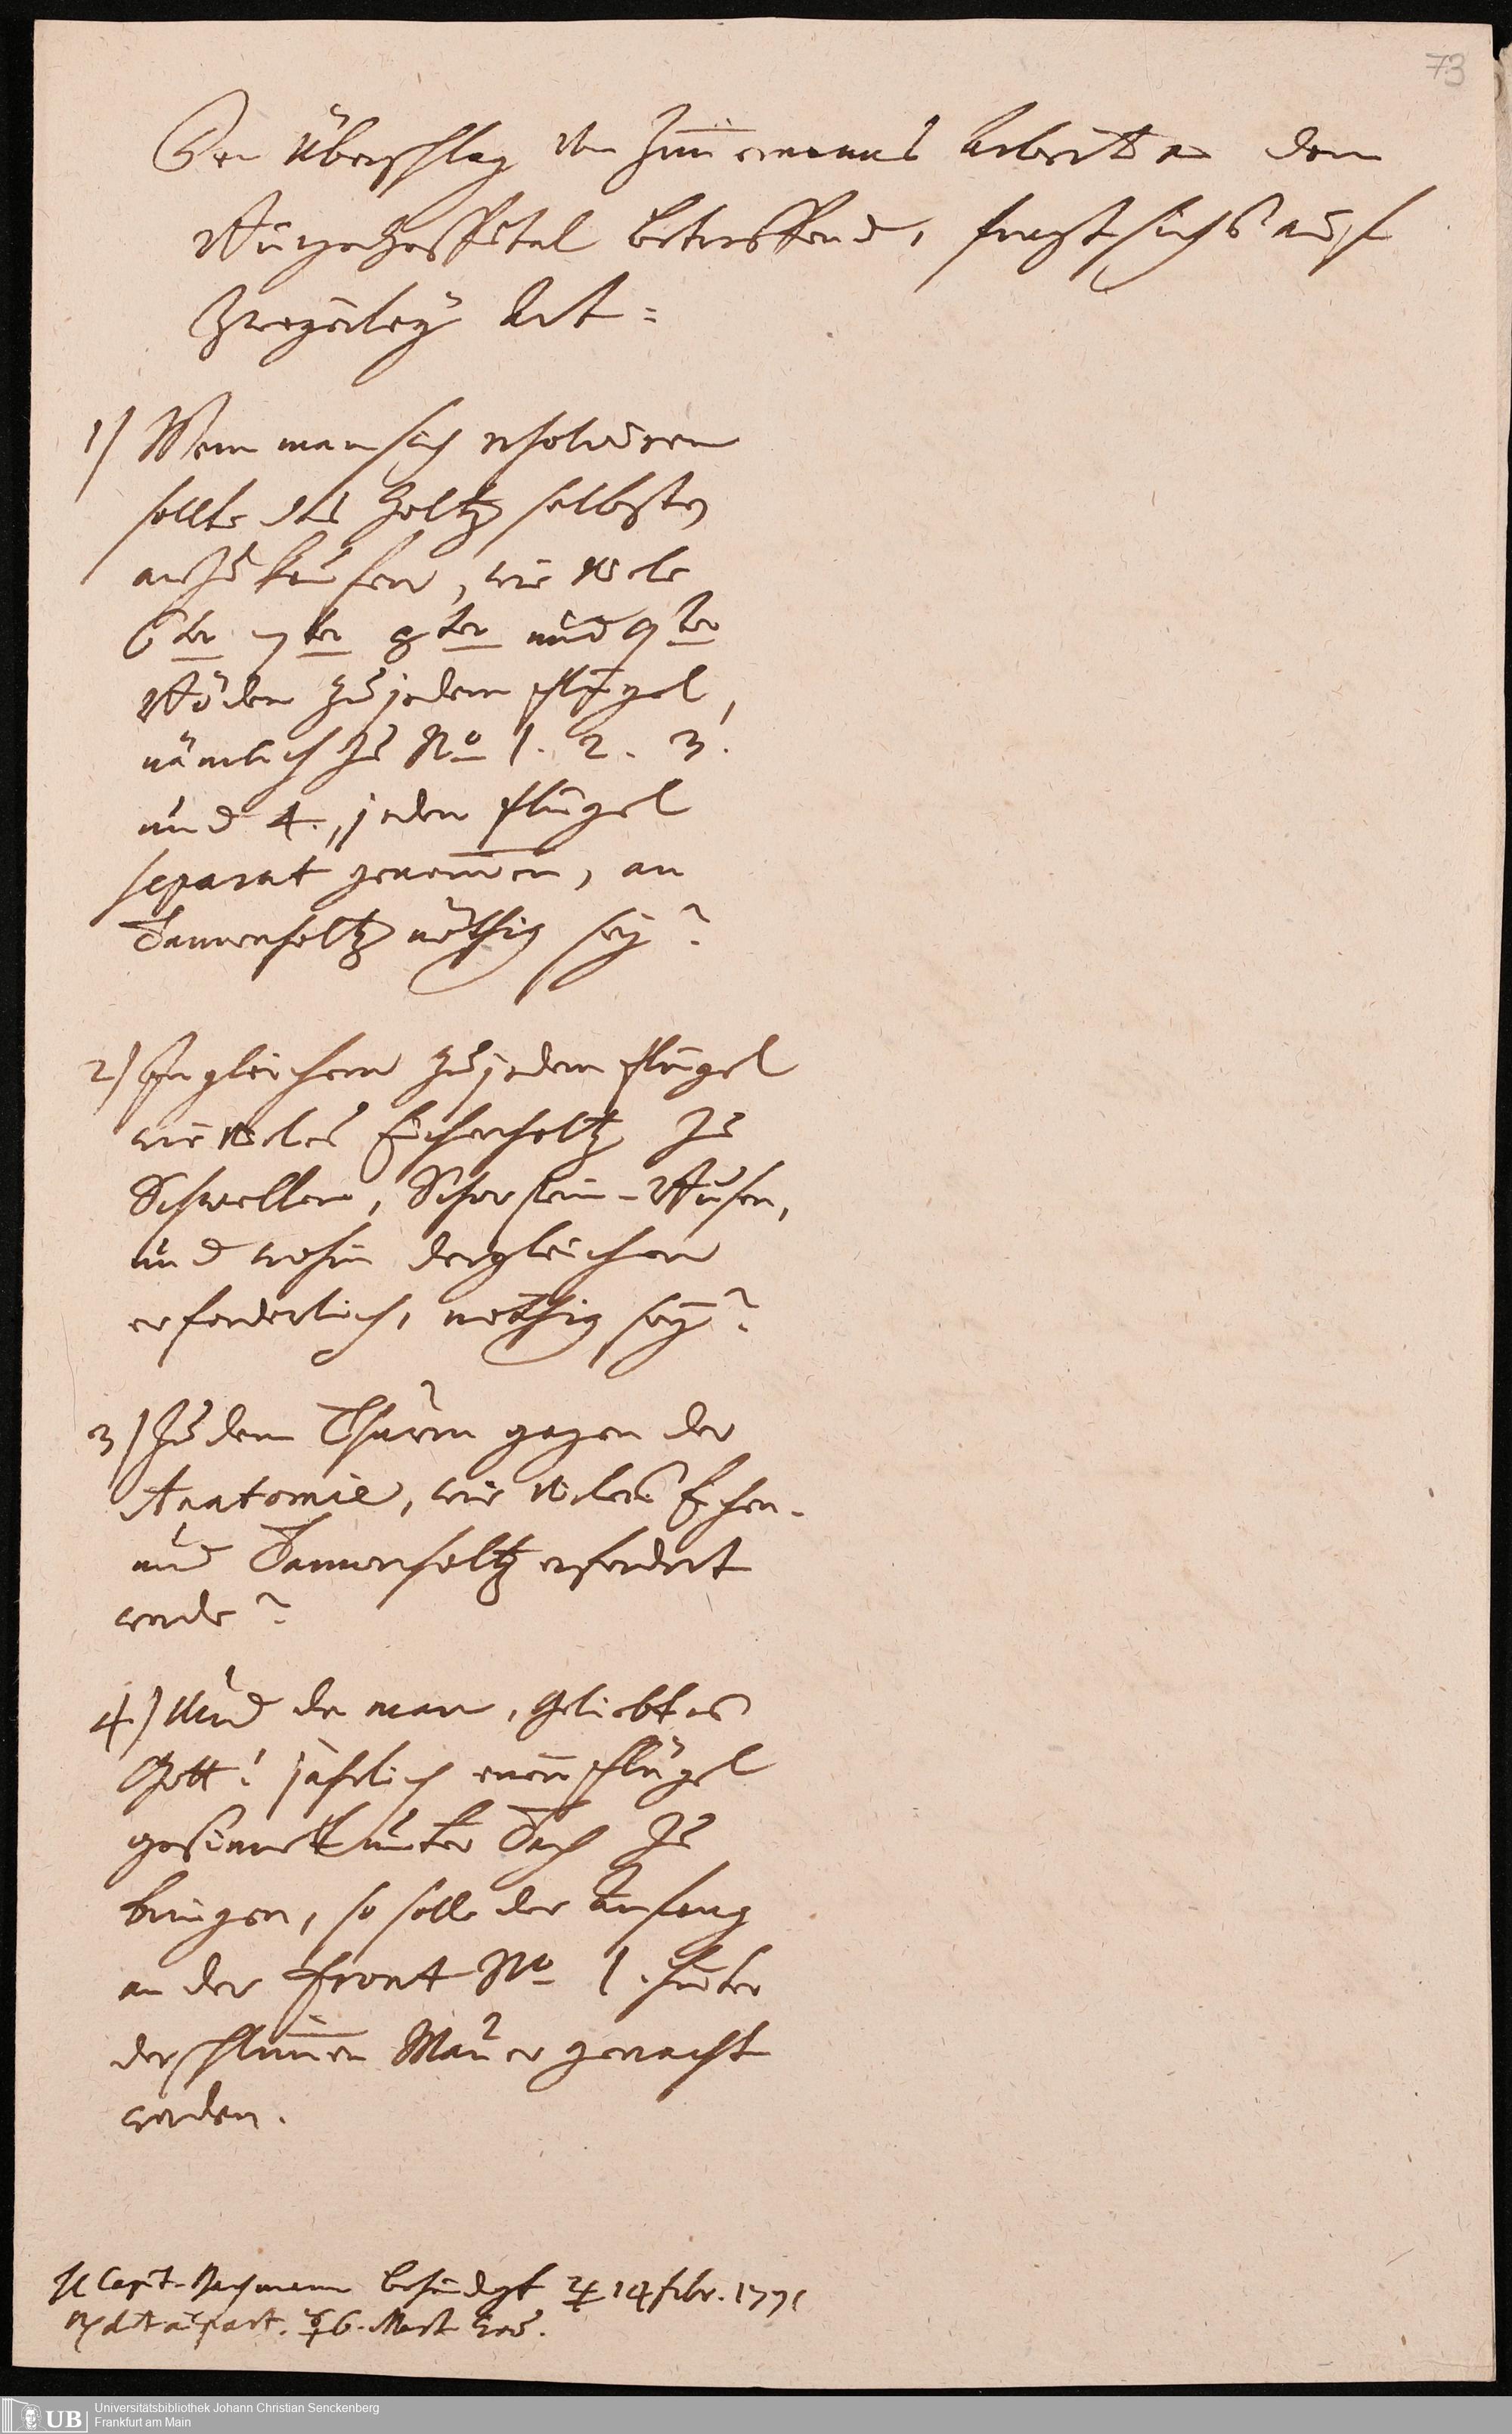 73
Den Überschlag von Zim̄ermanns Arbeit an dem
Bürgerhospital betreffend, fragt sichs auf
Zweyerley Art:
1) Wenn man sich resolviren
sollte das Holtz selbsten
anzukaufen, wie viele
6ter 7ter 8ter und 9ter
Böden zu jedem Flügel,
nämlich zu No 1. 2. 3.
und 4., jeden Flügel
separat genom̄en, an
Tannenholtz nöthig sey?
2) Ingleichem zu jedem Flügel
wie vieles Eichenholtz zu
Schwellen, Schorstein-Busen,
und wohin dergleichen
erforderlich, nöthig sey?
3) Zu dem Thurm gegen der
Anatomie, wie vieles Eichen-
und Tannenholtz erfordert
werde?
4) Und da man, geliebt es
Gott! jährlich einen Flügel
gesinnet unter Dach zu
bringen, so solle der Anfang
an der Front No 1. hinter
der schlim̄en Mauer gemacht
werden.
H Capit. Bachmann behändigt ♃ 14 Febr. 1771
6. Mart
UB
Universitätsbibliothek Johann Christian Senckenberg
Frankfurt am Main